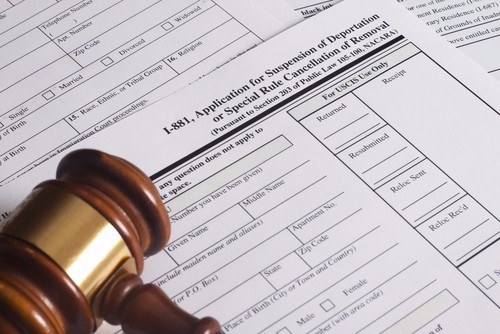 Telephone Number
Apt. Number
Zip Code
Divorced
Widowed
Single
Married
15. Race, Ethnic, or Tribal Group
16. Religion
of Birth
in Immigration Court proceedings.
at Birth
black ink
Residence (I-687)
I-881, Application for Suspension of Deportation
or Special Rule Cancellation of Removal
(Pursuant to Section 203 of Public Law 105-100, NACARA)
For USCIS Use Only
Returned
Receipt
Resubmitted
Reloc Sent
Reloc Rec'd
any question does not apply to
space.
Number you have been given)
Given Name
Middle Name
include maiden name and aliases)
or P.O. Box)
State
Apartment No.
Zip Code
Place of Birth (City or Town and Country)
Male
Female
Number (with area code)
USCIS